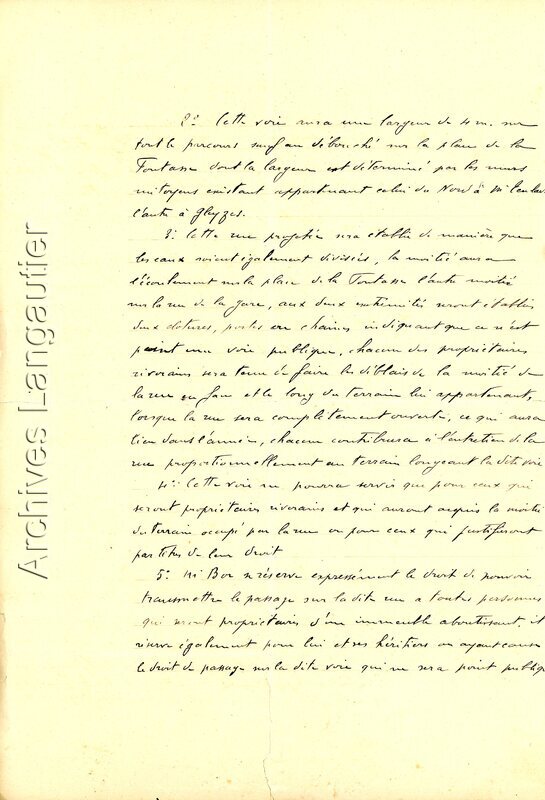 2° Cette voie aura une largeur de 4 m. sur
tout le parcours sauf au débouché sur la place de la
Fontasse dont la largeur est déterminé par les murs
mitoyens existant appartenant celui du Nord à M
l'autre à Gleyzes.
3° Cette rue projetée sera établie de manière que
les eaux soient également divisées, la moitié aura
l'écoulement sur la place de la Fontasse l'autre moitié
sur la rue de la gare, aux deux extrémités seront établies
deux clotures, portes ou chaines indiquant que ce n'est
point une voie publique, chacun des propriétaires
riverains sera tenu de faire les déblais de la moitié de
la rue en face et le long du terrain lui appartenant,
lorsque la rue sera complètement ouverte, ce qui aura
lieu dans l'année, chacun contribuera à l'entretien de la
rue proportionnellement au terrain longeant la dite voie
4° Cette voie ne pourra servir que pour ceux qui
seront propriétaires riverains et qui auront acquis la moitié
du terrain occupé par la rue ou pour ceux qui justifieront
par titres de leur droit
5° M Bor se réserve expressément le droit de pouvoir
transmettre le passage sur la dite rue a toutes personnes
qui seront propriétaires d'un immeuble aboutissant, il
réserve également pour lui et ses héritiers ou ayant cause
le droit de passage sur la dite voie qui ne sera point publique
Archives Langautier